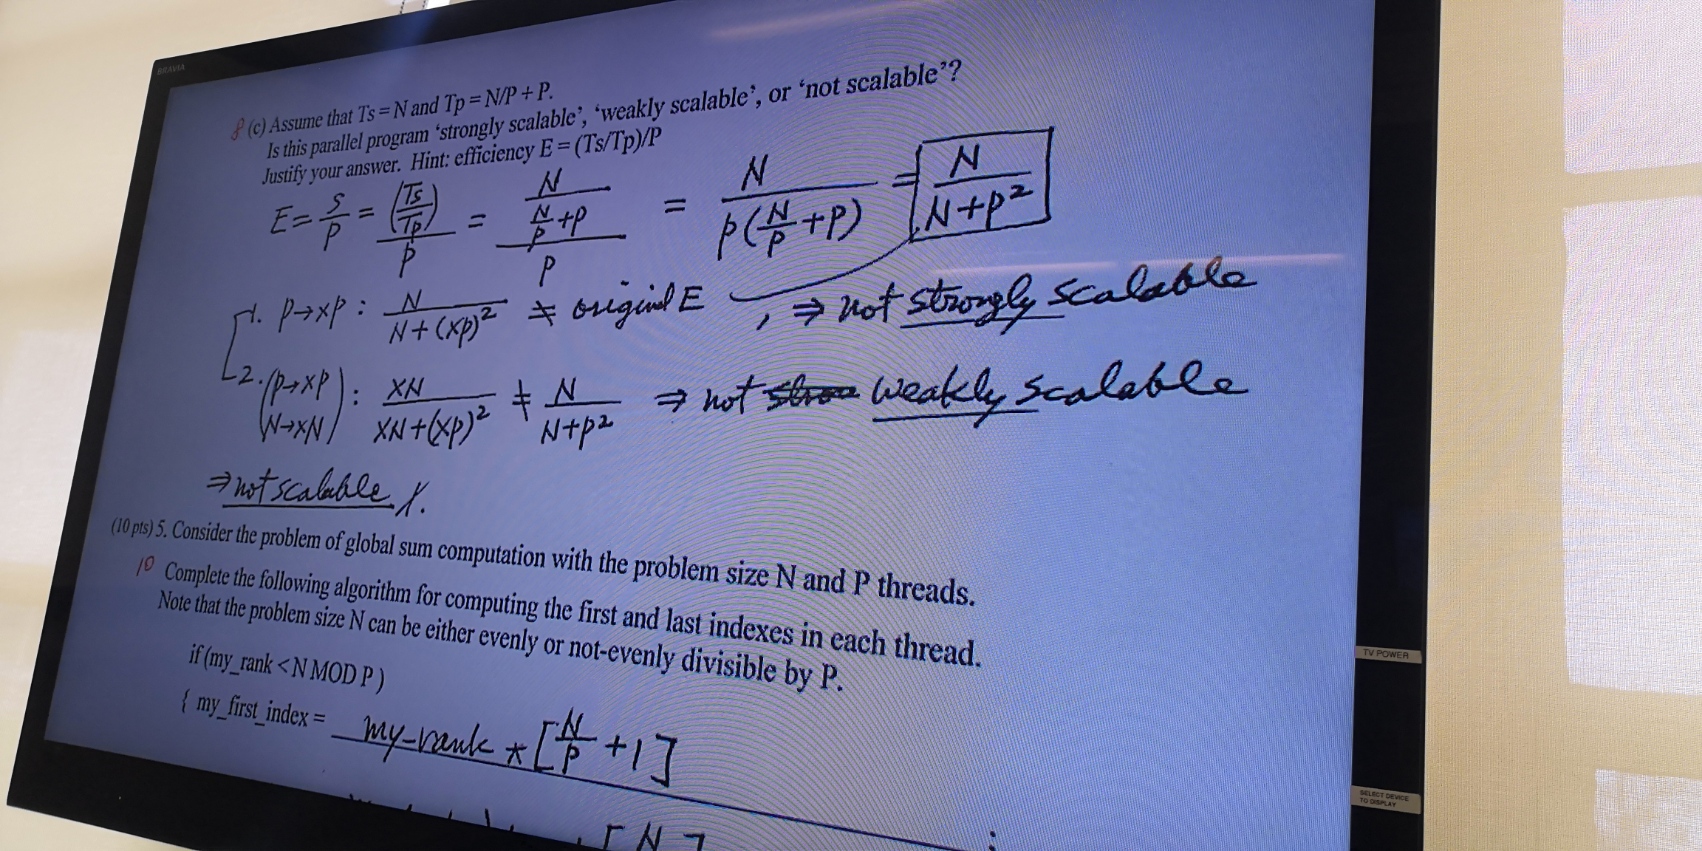 BRAVIA
8 (c) Assume that Ts = N and Tp = N/P + P.
Is this parallel program ‘strongly scalable’, ‘weakly scalable’, or ‘not scalable’?
Justify your answer. Hint: efficiency E = (Ts/Tp)/P
E = S/P = (Ts/Tp)/P = (N/(N/P + P))/P = N/(P(N/P + P)) = N/(N+P²)
1. P→XP : N/(N+(XP)²) ≠ original E , ⇒ not strongly scalable
2. (P→XP N→XN) : XN/(XN+(XP)²) ≠ N/(N+P²) ⇒ not weakly scalable
⇒ not scalable
(10 pts) 5. Consider the problem of global sum computation with the problem size N and P threads.
10 Complete the following algorithm for computing the first and last indexes in each thread.
Note that the problem size N can be either evenly or not-evenly divisible by P.
if (my_rank < N MOD P )
{ my_first_index = my-rank * [N/P + 1] ;
[ N ]
TV POWER
SELECT DEVICE
TO DISPLAY